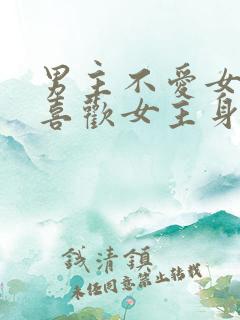 男主不愛女
喜歡女主身
錢清鎮
未經同意禁止轉載